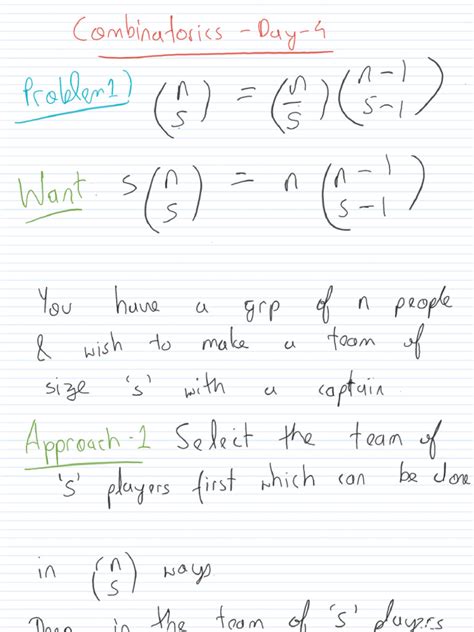 Combinatorics - Day-4
Problem 1) (n s) = (n/s) (n-1 s-1)
Want s (n s) = n (n-1 s-1)
You have a grp of n people
& wish to make a team of
size 's' with a captain
Approach-1 Select the team of
's' players first which can be done
in (n s) ways
Then in the team of 's' players